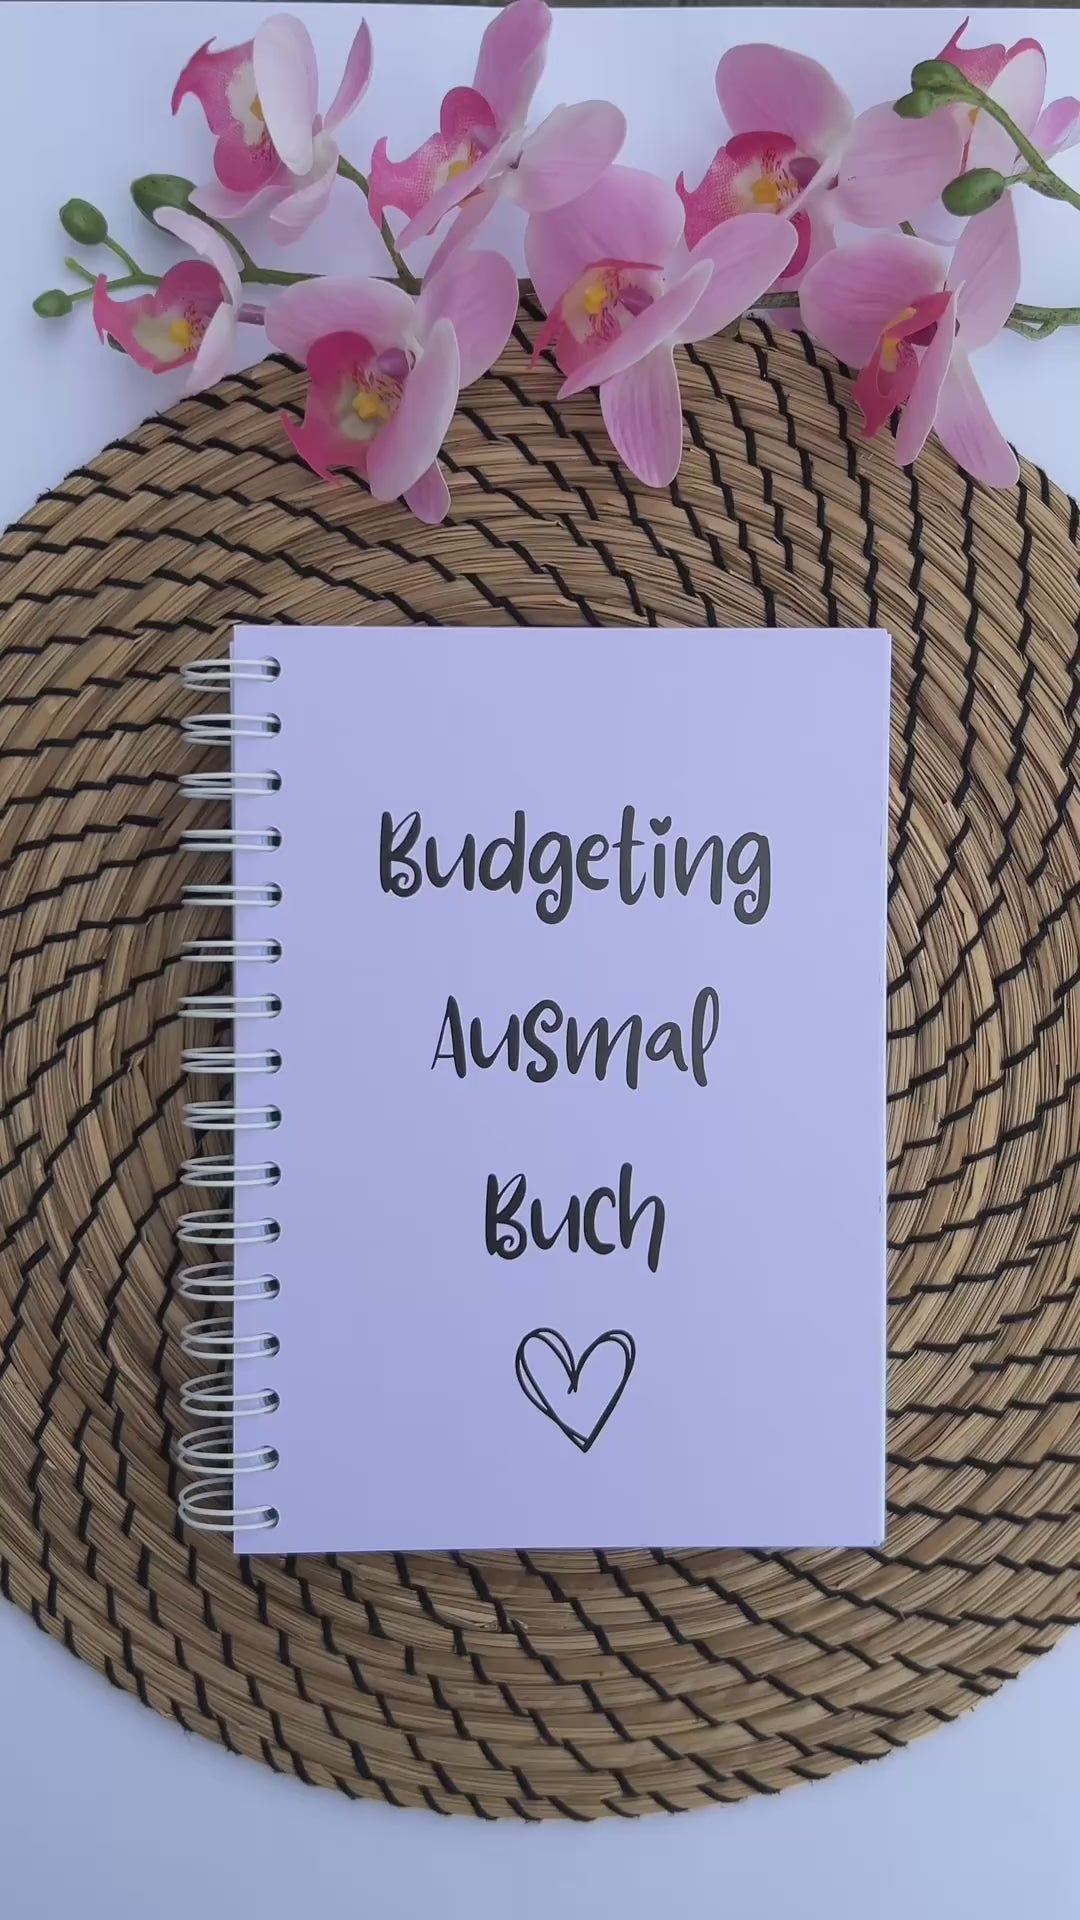 Budgeting
Ausmal
Buch